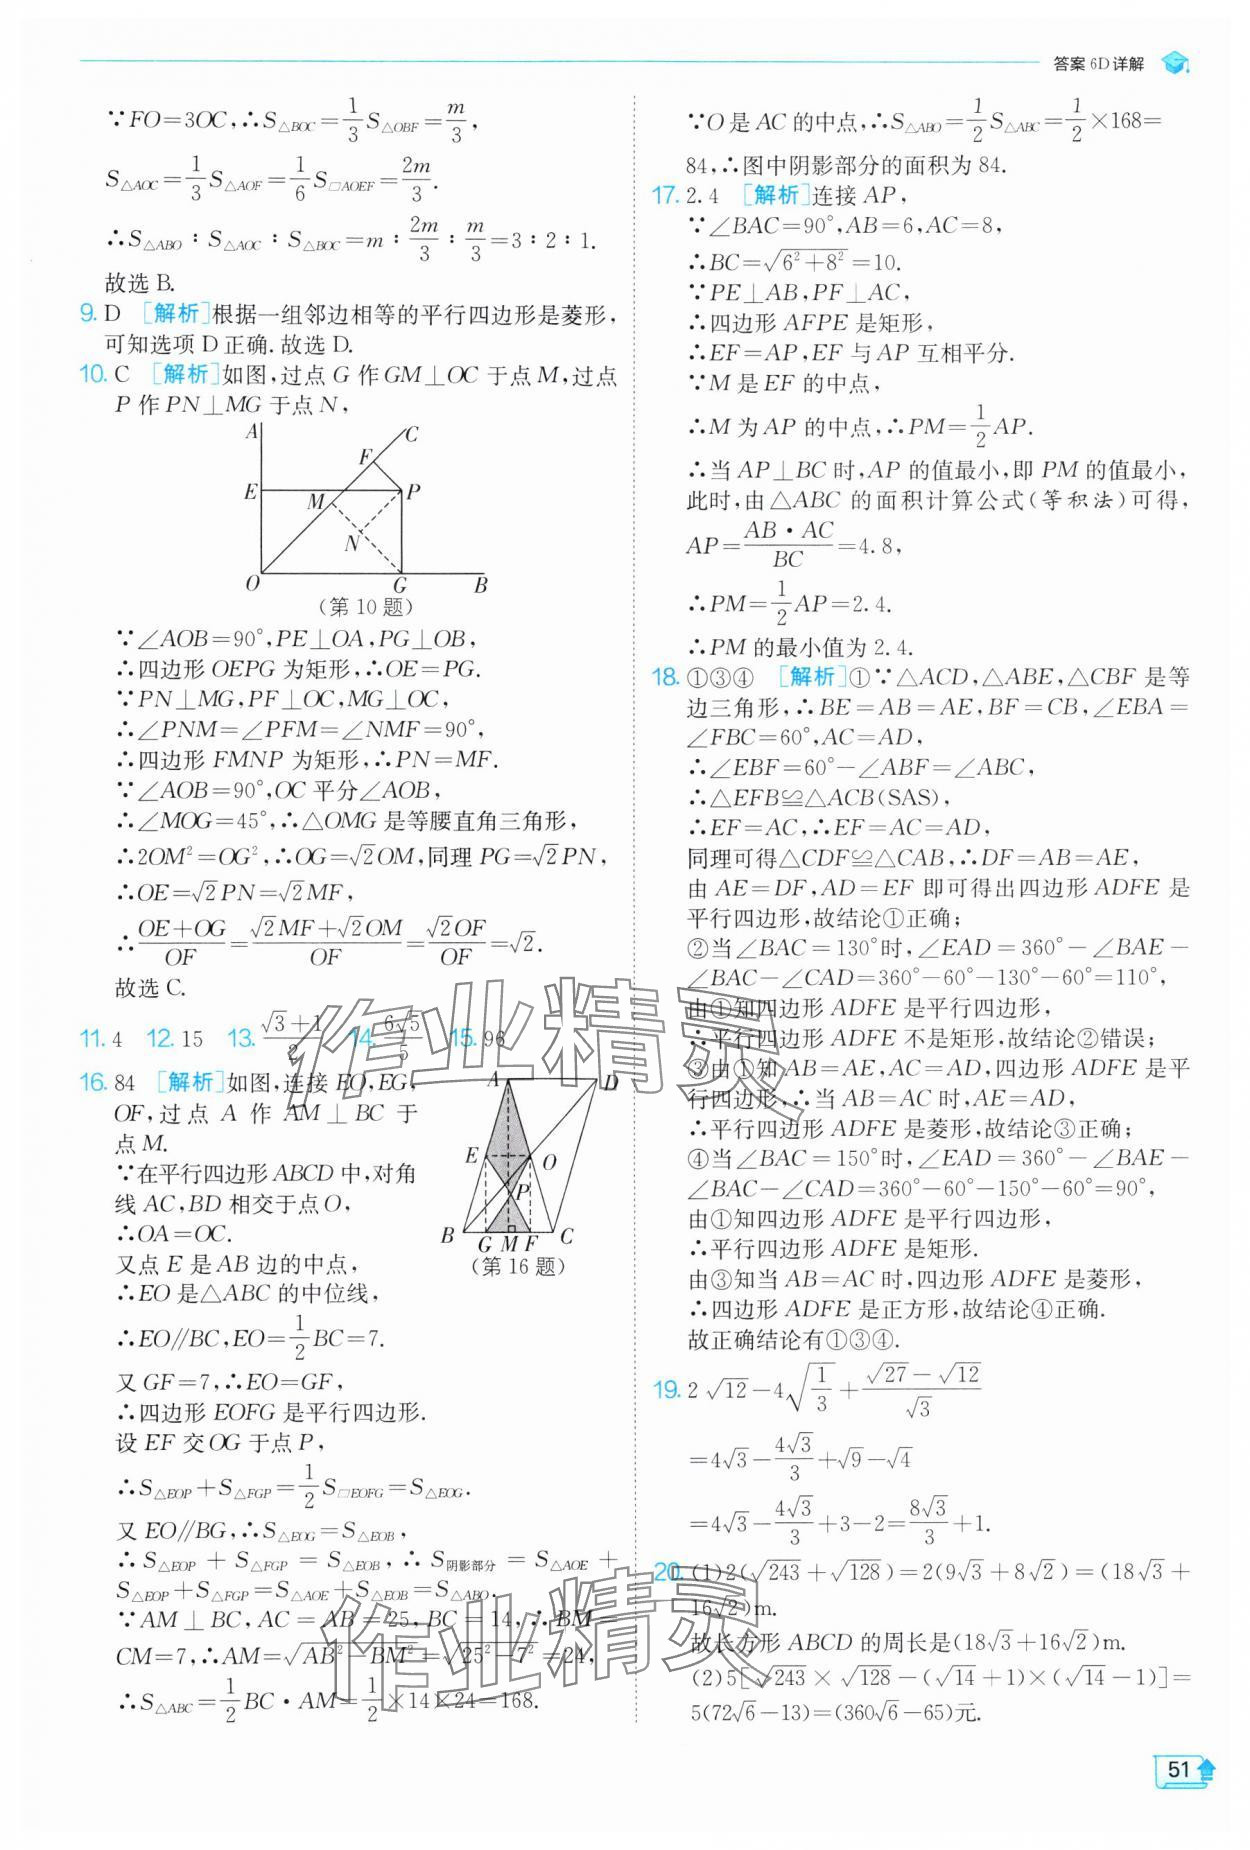 答案 6D 详解
∵FO=3OC,∴S△BOC=1/3 S△OBF=m/3,
S△AOC=1/3 S△AOF=1/6 S□AOEF=2m/3.
∴S△ABO∶S△AOC∶S△BOC=m∶2m/3∶m/3=3∶2∶1.
故选 B.
9. D [解析]根据一组邻边相等的平行四边形是菱形,
可知选项 D 正确.故选 D.
10. C [解析]如图,过点 G 作 GM⊥OC 于点 M,过点
P 作 PN⊥MG 于点 N,
A C F E M P N O G B
(第 10 题)
∵∠AOB=90°,PE⊥OA,PG⊥OB,
∴四边形 OEPG 为矩形,∴OE=PG.
∵PN⊥MG,PF⊥OC,MG⊥OC,
∴∠PNM=∠PFM=∠NMF=90°,
∴四边形 FMNP 为矩形,∴PN=MF.
∵∠AOB=90°,OC 平分∠AOB,
∴∠MOG=45°,∴△OMG 是等腰直角三角形,
∴2OM²=OG²,∴OG=√2OM,同理 PG=√2PN,
∴OE=√2PN=√2MF,
∴(OE+OG)/OF=(√2MF+√2OM)/OF=√2OF/OF=√2.
故选 C.
11. 4 12. 15 13. (√3+1)/2 14. 6√5/5 15. 96
16. 84 [解析]如图,连接 EO,EG,
OF,过点 A 作 AM⊥BC 于
点 M.
∵在平行四边形 ABCD 中,对角
线 AC,BD 相交于点 O,
∴OA=OC.
又点 E 是 AB 边的中点,
∴EO 是△ABC 的中位线,
∴EO∥BC,EO=1/2 BC=7.
又 GF=7,∴EO=GF,
∴四边形 EOFG 是平行四边形.
设 EF 交 OG 于点 P,
A D E O P B G M F C
(第 16 题)
∴S△EOP+S△FGP=1/2 S□EOFG=S△EOG.
又 EO∥BG,∴S△EOG=S△EOB,
∴S△EOP+S△FGP=S△EOB,∴S阴影部分=S△AOE+
S△EOP+S△FGP=S△AOE+S△EOB=S△ABO.
∵AM⊥BC,AC=AB=25,BC=14,∴BM=
CM=7,∴AM=√(AB²-BM²)=√(25²-7²)=24,
∴S△ABC=1/2 BC·AM=1/2×14×24=168.
∵O 是 AC 的中点,∴S△ABO=1/2 S△ABC=1/2×168=
84,∴图中阴影部分的面积为 84.
17. 2.4 [解析]连接 AP,
∵∠BAC=90°,AB=6,AC=8,
∴BC=√(6²+8²)=10.
∵PE⊥AB,PF⊥AC,
∴四边形 AFPE 是矩形,
∴EF=AP,EF 与 AP 互相平分.
∵M 是 EF 的中点,
∴M 为 AP 的中点,∴PM=1/2 AP.
∴当 AP⊥BC 时,AP 的值最小,即 PM 的值最小,
此时,由△ABC 的面积计算公式(等积法)可得,
AP=AB·AC/BC=4.8,
∴PM=1/2 AP=2.4.
∴PM 的最小值为 2.4.
18. ①③④ [解析]①∵△ACD,△ABE,△CBF 是等
边三角形,∴BE=AB=AE,BF=CB,∠EBA=
∠FBC=60°,AC=AD,
∴∠EBF=60°-∠ABF=∠ABC,
∴△EFB≌△ACB(SAS),
∴EF=AC,∴EF=AC=AD,
同理可得△CDF≌△CAB,∴DF=AB=AE,
由 AE=DF,AD=EF 即可得出四边形 ADFE 是
平行四边形,故结论①正确;
②当∠BAC=130°时,∠EAD=360°-∠BAE-
∠BAC-∠CAD=360°-60°-130°-60°=110°,
由①知四边形 ADFE 是平行四边形,
∴平行四边形 ADFE 不是矩形,故结论②错误;
③由①知 AB=AE,AC=AD,四边形 ADFE 是平
行四边形,∴当 AB=AC 时,AE=AD,
∴平行四边形 ADFE 是菱形,故结论③正确;
④当∠BAC=150°时,∠EAD=360°-∠BAE-
∠BAC-∠CAD=360°-60°-150°-60°=90°,
由①知四边形 ADFE 是平行四边形,
∴平行四边形 ADFE 是矩形.
由③知当 AB=AC 时,四边形 ADFE 是菱形,
∴四边形 ADFE 是正方形,故结论④正确.
故正确结论有①③④.
19. 2√12-4√(1/3)+(√27-√12)/√3
=4√3-4√3/3+√9-√4
=4√3-4√3/3+3-2=8√3/3+1.
20. (1)2(√243+√128)=2(9√3+8√2)=(18√3+
16√2)m.
故长方形 ABCD 的周长是(18√3+16√2)m.
(2)5[√243×√128-(√14+1)×(√14-1)]=
5(72√6-13)=(360√6-65)元.
51
作业精灵
作业精灵